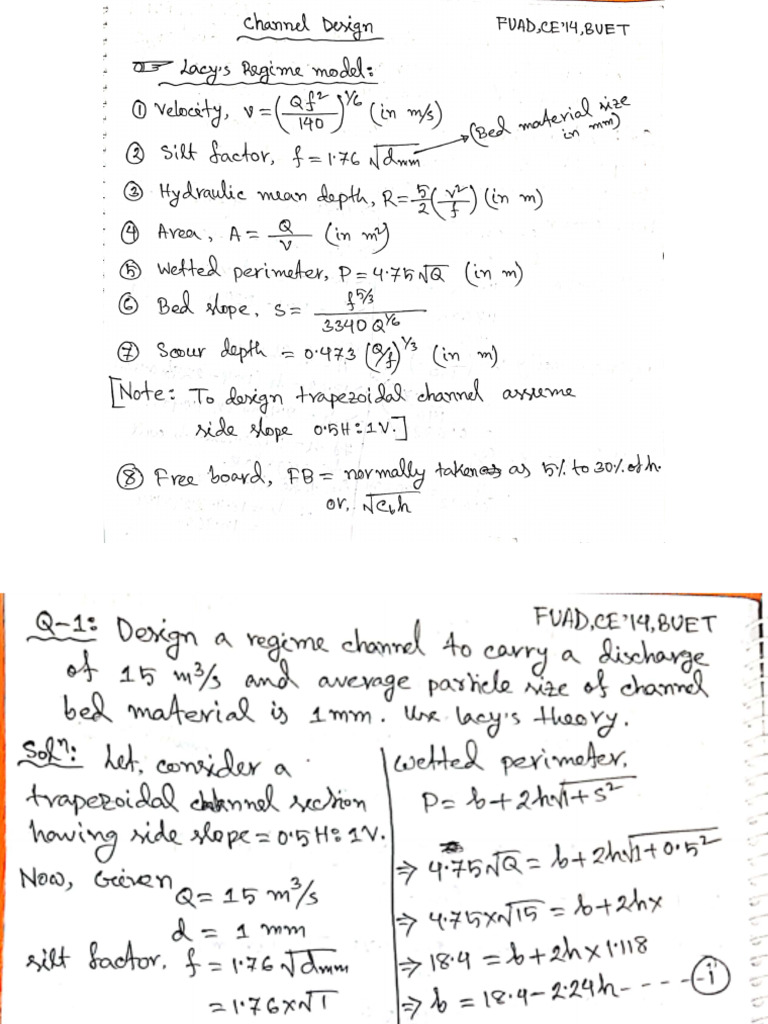 Channel Design
FUAD,CE'14,BUET
Lacy's Regime model:
① Velocity, v = (Qf²/140)^1/6 (in m/s)
② Silt factor, f = 1.76 √dmm → (Bed material size in mm)
③ Hydraulic mean depth, R = 5/2 (v²/f) (in m)
④ Area, A = Q/v (in m²)
⑤ Wetted perimeter, P = 4.75√Q (in m)
⑥ Bed slope, S = f^5/3 / 3340 Q^1/6
⑦ Scour depth = 0.473 (Q/f)^1/3 (in m)
[Note: To design trapezoidal channel assume
side slope 0.5H:1V.]
⑧ Free board, FB = normally taken as 5% to 30% of h.
or, √Cbh
FUAD,CE'14,BUET
Q-1: Design a regime channel to carry a discharge
of 15 m³/s and average particle size of channel
bed material is 1mm. Use lacy's theory.
Solⁿ: Let, consider a
trapezoidal channel section
having side slope = 0.5H:1V.
Now, Given
Q = 15 m³/s
d = 1 mm
silt factor, f = 1.76 √dmm
= 1.76×√1
Wetted perimeter,
P = b+2h√1+s²
⇒ 4.75√Q = b+2h√1+0.5²
⇒ 4.75×√15 = b+2h×
⇒ 18.4 = b+2h×1.118
⇒ b = 18.4-2.24h - - - - - (i)